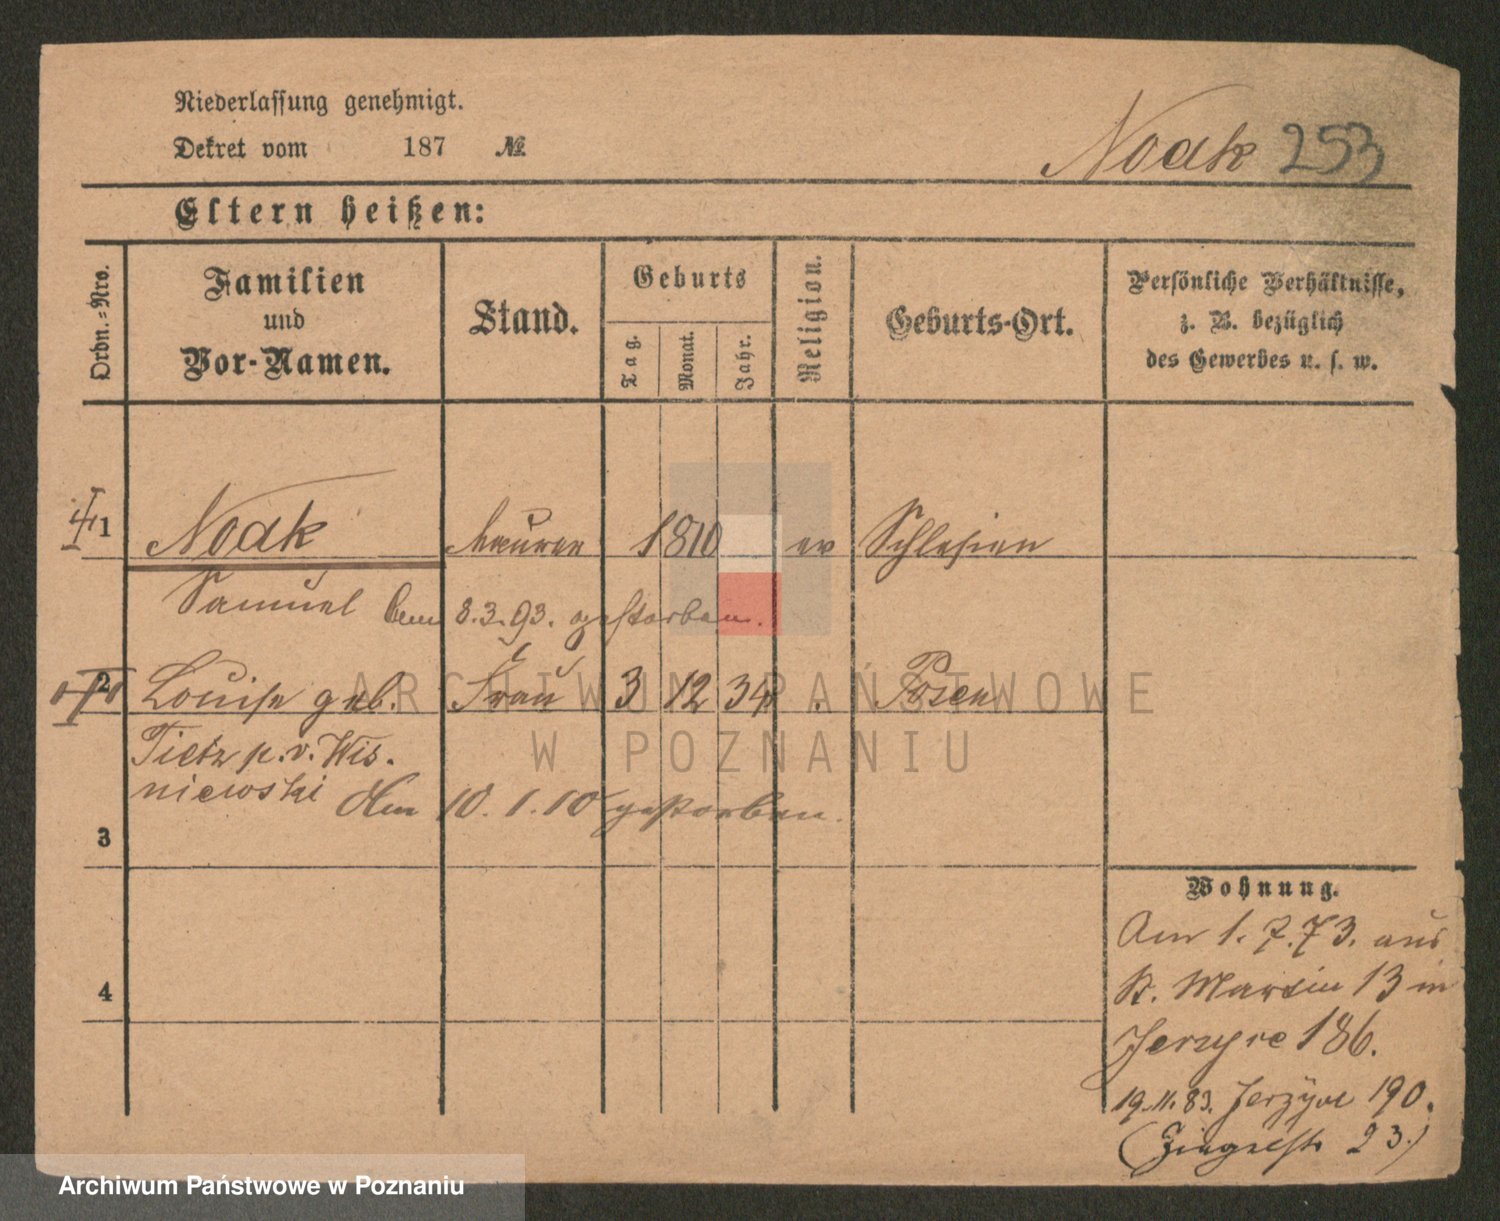 Niederlassung genehmigt.
Dekret vom 187 №
Noak 253
Eltern heißen:
Ordn.-Nro.
Familien und Vor-Namen.
Stand.
Geburts
Tag.
Monat.
Jahr.
Religion.
Geburts-Ort.
Persönliche Verhältnisse,
z. B. bezüglich
des Gewerbes u. s. w.
1 Noak Maurer 1810 ev Schlesien
Samuel Am 8.3.93. gestorben.
2 Louise geb. Frau 3 12 34 Posen
Tietz p. v. Wis-
niewski Am 10.1.10 gestorben.
3
4
Wohnung.
Am 1.7.73. aus
St. Martin 13 in
Jerzyce 186.
19.11.83. Jerzyce 190.
(23.)
ARCHIWUM PAŃSTWOWE
W POZNANIU
Archiwum Państwowe w Poznaniu